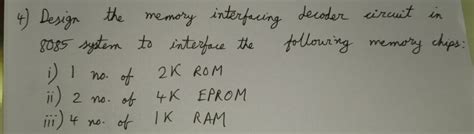 4) Design the memory interfacing decoder circuit in
8085 system to interface the following memory chips:
i) 1 no. of 2K ROM
ii) 2 no. of 4K EPROM
iii) 4 no. of 1K RAM